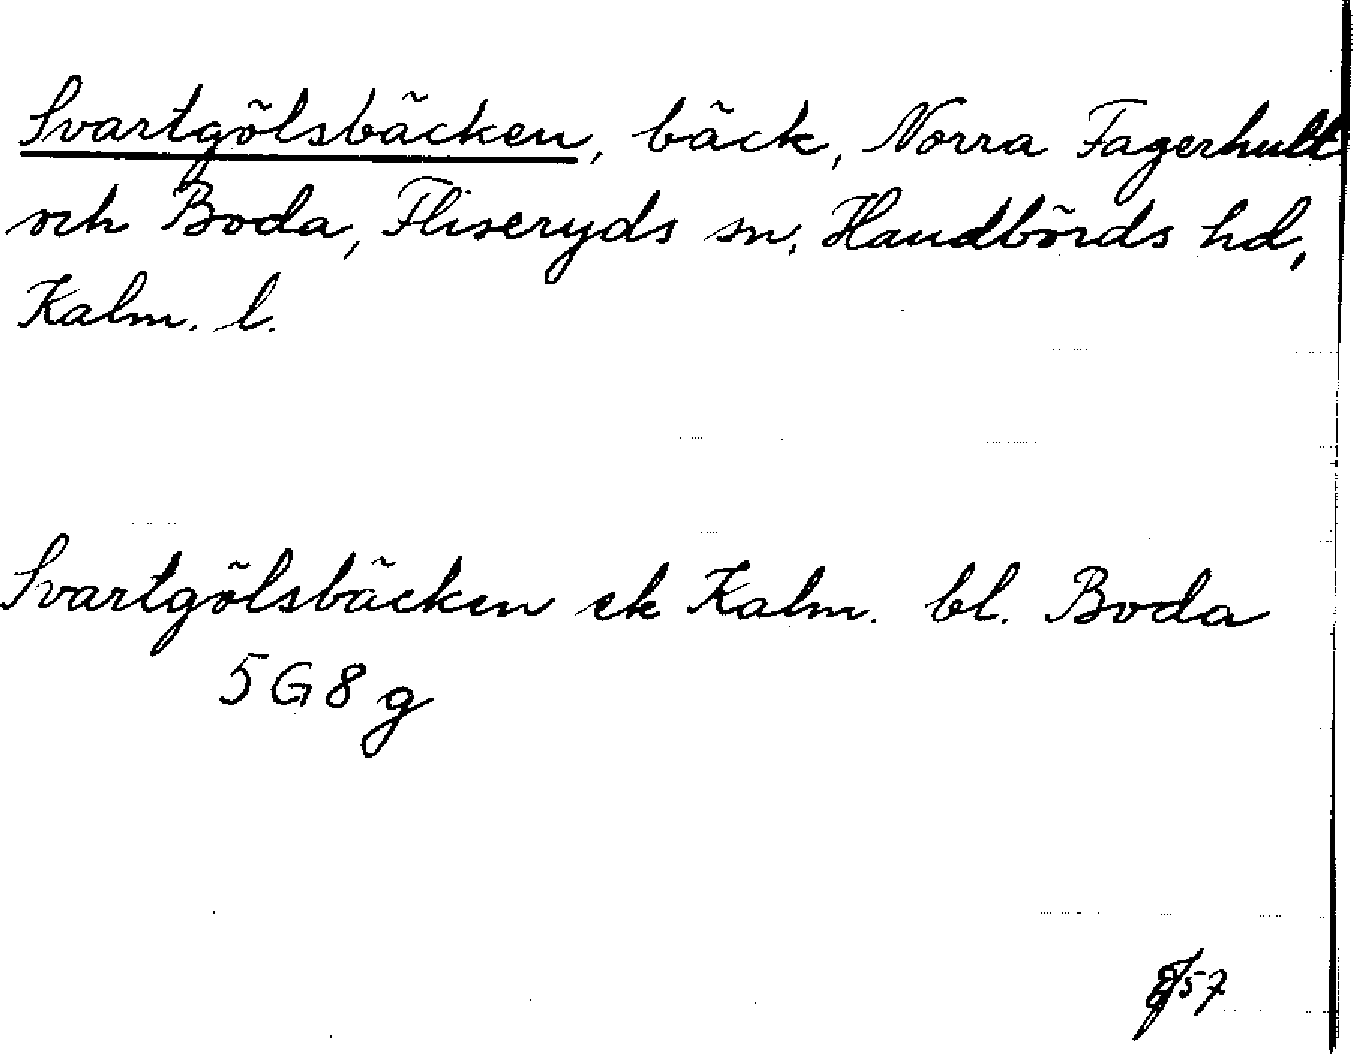 Svartgölsbäcken, bäck, Norra Fagerhult
och Boda, Fliseryds sn, Handbörds hd,
Kalm. l.
Svartgölsbäcken ek Kalm. bl. Boda
5 G 8 g
57